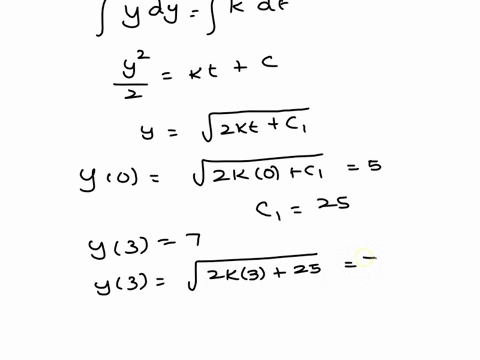 ∫ y dy = ∫ k dt
y²/2 = kt + C
y = √(2kt + C₁)
y(0) = √(2k(0) + C₁) = 5
C₁ = 25
y(3) = 7
y(3) = √(2k(3) + 25) =